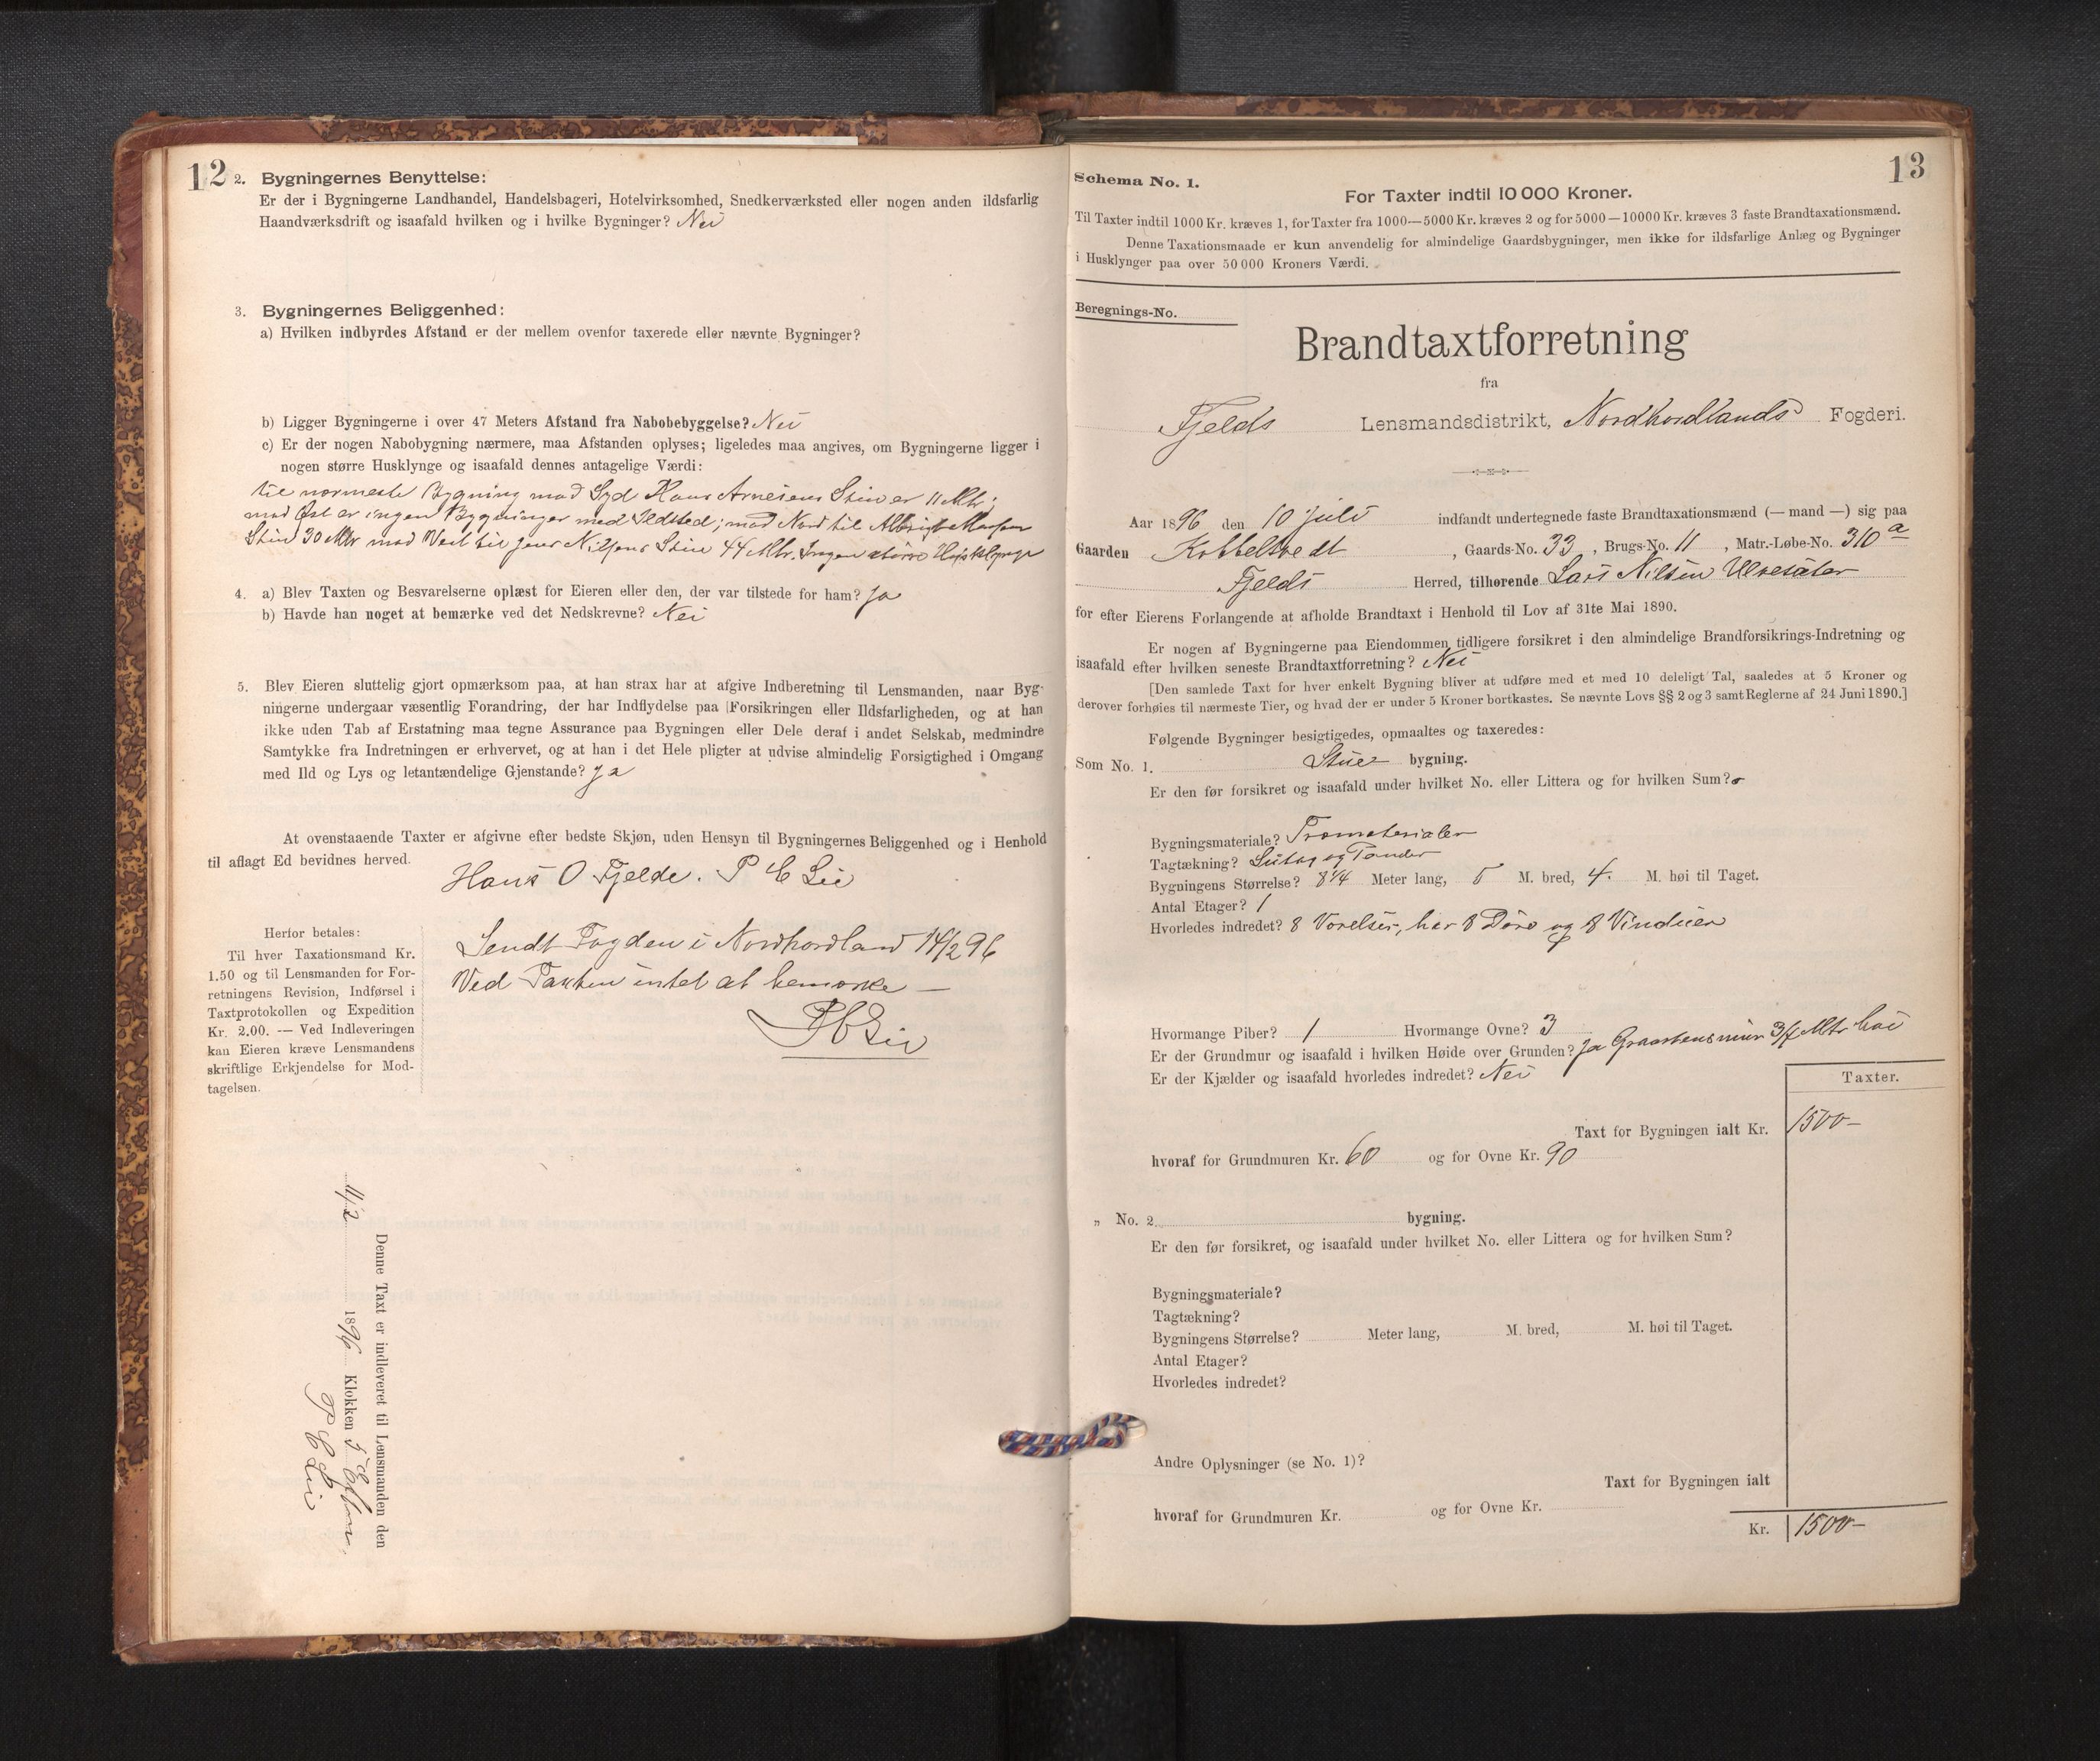 12
2. Bygningernes Benyttelse:
Er der i Bygningerne Landhandel, Handelsbageri, Hotelvirksomhed, Snedkerværksted eller nogen anden ildsfarlig
Haandværksdrift og isaafald hvilken og i hvilke Bygninger? Nei
3. Bygningernes Beliggenhed:
a) Hvilken indbyrdes Afstand er der mellem ovenfor taxerede eller nævnte Bygninger?
b) Ligger Bygningerne i over 47 Meters Afstand fra Nabobebyggelse? Nei
c) Er der nogen Nabobygning nærmere, maa Afstanden oplyses; ligeledes maa angives, om Bygningerne ligger i
nogen større Husklynge og isaafald dennes antagelige Værdi:
til nærmeste Bygning mod Syd Hans Arnesens Stue er 11 Mtr;
mod Øst er ingen Bygninger med Ildsted; mod Nord til
Stue 30 Mtr mod Vest til Jens Nilsens Stue 44 Mtr. Ingen større Husklynge
4. a) Blev Taxten og Besvarelserne oplæst for Eieren eller den, der var tilstede for ham? Ja
b) Havde han noget at bemærke ved det Nedskrevne? Nei
5. Blev Eieren sluttelig gjort opmærksom paa, at han strax har at afgive Indberetning til Lensmanden, naar Byg-
ningerne undergaar væsentlig Forandring, der har Indflydelse paa Forsikringen eller Ildsfarligheden, og at han
ikke uden Tab af Erstatning maa tegne Assurance paa Bygningen eller Dele deraf i andet Selskab, medmindre
Samtykke fra Indretningen er erhvervet, og at han i det Hele pligter at udvise almindelig Forsigtighed i Omgang
med Ild og Lys og letantændelige Gjenstande? Ja
At ovenstaaende Taxter er afgivne efter bedste Skjøn, uden Hensyn til Bygningernes Beliggenhed og i Henhold
til aflagt Ed bevidnes herved.
Hans O Fjelde. P C Lie
Herfor betales:
Til hver Taxationsmand Kr.
1.50 og til Lensmanden for For-
retningens Revision, Indførsel i
Taxtprotokollen og Expedition
Kr. 2.00. — Ved Indleveringen
kan Eieren kræve Lensmandens
skriftlige Erkjendelse for Mod-
tagelsen.
Sendt Fogden i Nordhordland 14/2 96
Ved Taxten intet at bemærke —
P C Lie
Denne Taxt er indleveret til Lensmanden den
11/2 1896 Klokken 5
P C Lie
13
Schema No. 1.
For Taxter indtil 10 000 Kroner.
Til Taxter indtil 1000 Kr. kræves 1, for Taxter fra 1000—5000 Kr. kræves 2 og for 5000—10000 Kr. kræves 3 faste Brandtaxationsmænd.
Denne Taxationsmaade er kun anvendelig for almindelige Gaardsbygninger, men ikke for ildsfarlige Anlæg og Bygninger
i Husklynger paa over 50 000 Kroners Værdi.
Beregnings-No.
Brandtaxtforretning
fra
Fjelds Lensmandsdistrikt, Nordhordlands Fogderi.
Aar 1896 den 10 Juli indfandt undertegnede faste Brandtaxationsmænd (— mand —) sig paa
Gaarden Kobbeltvedt, Gaards-No. 33, Brugs-No. 11, Matr.-Løbe-No. 310a
Fjelds Herred, tilhørende Lars Nilsen Ulvesæter
for efter Eierens Forlangende at afholde Brandtaxt i Henhold til Lov af 31te Mai 1890.
Er nogen af Bygningerne paa Eiendommen tidligere forsikret i den almindelige Brandforsikrings-Indretning og
isaafald efter hvilken seneste Brandtaxtforretning? Nei
[Den samlede Taxt for hver enkelt Bygning bliver at udføre med et med 10 deleligt Tal, saaledes at 5 Kroner og
derover forhøies til nærmeste Tier, og hvad der er under 5 Kroner bortkastes. Se nævnte Lovs §§ 2 og 3 samt Reglerne af 24 Juni 1890.]
Følgende Bygninger besigtigedes, opmaaltes og taxeredes:
Som No. 1. Stue bygning.
Er den før forsikret og isaafald under hvilket No. eller Littera og for hvilken Sum?
Bygningsmateriale? Træmaterialer
Tagtækning? Sutag og Pander
Bygningens Størrelse? 8 1/4 Meter lang, 5 M. bred, 4. M. høi til Taget.
Antal Etager? 1
Hvorledes indredet? 8 Værelser, har 8 Døre og 8 Vinduer
Hvormange Piber? 1 Hvormange Ovne? 3
Er der Grundmur og isaafald i hvilken Høide over Grunden? Ja Graastensmur 3/4 Mtr høi
Er der Kjælder og isaafald hvorledes indredet? Nei
Taxter.
Taxt for Bygningen ialt Kr. 1500—
hvoraf for Grundmuren Kr. 60 og for Ovne Kr. 90
„ No. 2 bygning.
Er den før forsikret, og isaafald under hvilket No. eller Littera og for hvilken Sum?
Bygningsmateriale?
Tagtækning?
Bygningens Størrelse? Meter lang, M. bred, M. høi til Taget.
Antal Etager?
Hvorledes indredet?
Andre Oplysninger (se No. 1)?
Taxt for Bygningen ialt
hvoraf for Grundmuren Kr. og for Ovne Kr.
Kr. 1500—